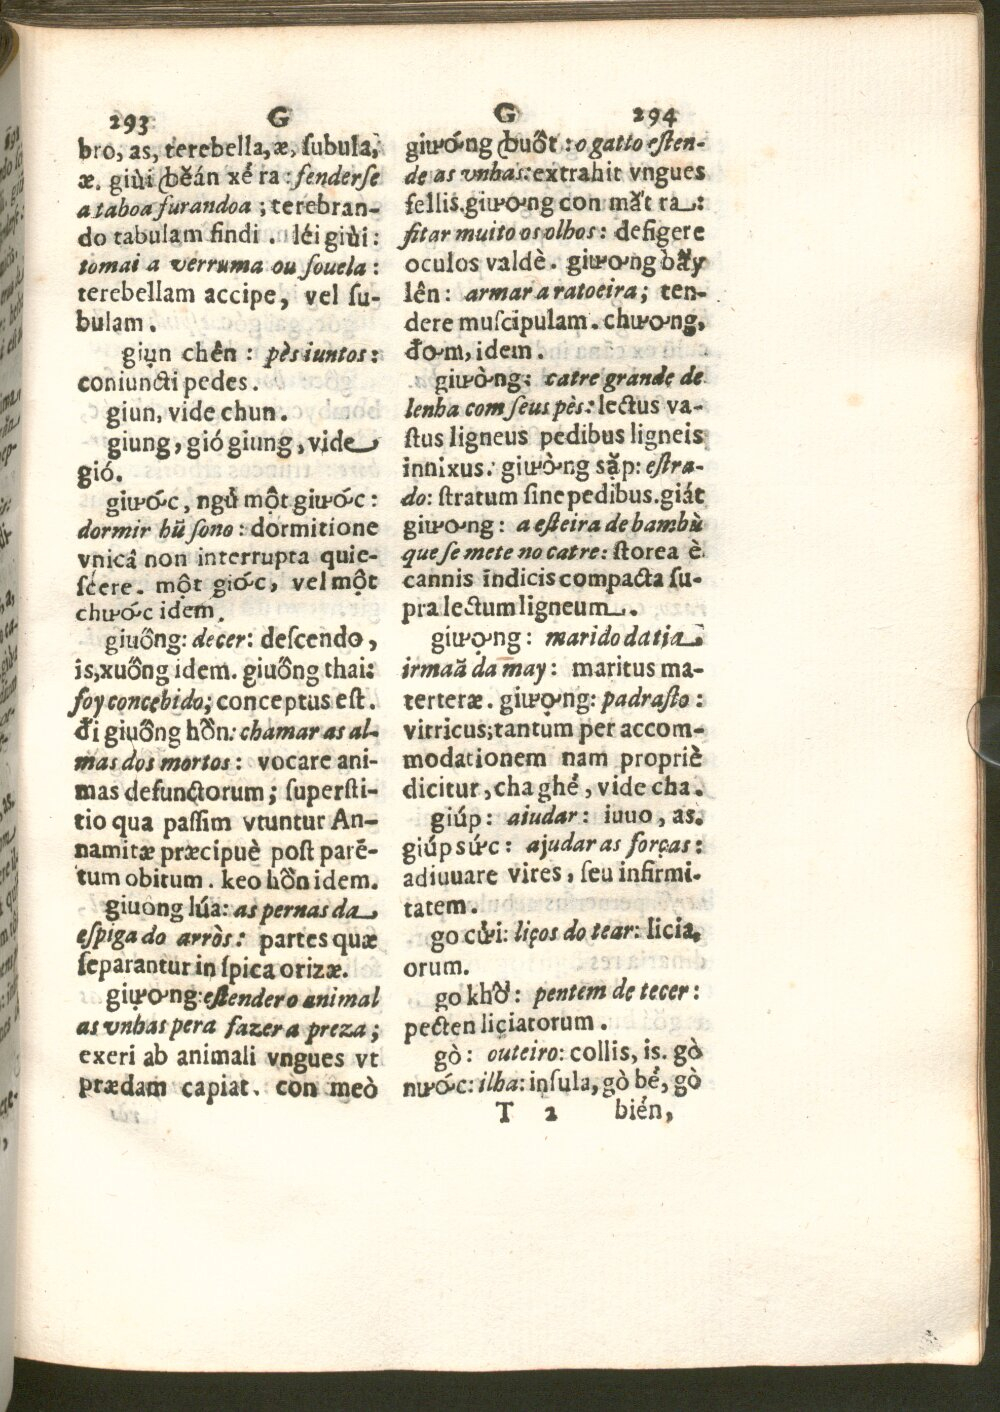 293 G
bro, as, terebella, æ, ſubula,
æ. giùi ꞗĕán xé ra: fenderſe
a taboa furandoa; terebran-
do tabulam findi. léi giùi:
tomai a verruma ou ſouela:
terebellam accipe, vel ſu-
bulam.
giụn chên: pès iuntos:
coniuncti pedes.
giun, vide chun.
giung, gió giung, vide
gió.
giước, ngủ một giước:
dormir hũ ſono: dormitione
vnicâ non interrupta quie-
ſcere. một gióc, vel một
chước idem.
giuống: decer: deſcendo,
is, xuống idem. giuống thai:
foy concebido; conceptus eſt.
đi giuống hồn: chamar as al-
mas dos mortos: vocare ani-
mas defunctorum; ſuperſti-
tio qua paſſim vtuntur An-
namitæ præcipuè poſt parē-
tum obitum. keo hồn idem.
giuông lúa: as pernas da
eſpiga do arròs: partes quæ
ſeparantur in ſpica orizæ.
giương: eſtender o animal
as vnhas pera fazer a preza;
exeri ab animali vngues vt
prædam capiat. con meò
G 294
giương ꞗuốt: o gatto eſten-
de as vnhas: extrahit vngues
fellis. giương con mắt ra:
fitar muito os olhos: defigere
oculos valdè. giương bẫy
lên: armar a ratoeira; ten-
dere muſcipulam. chương,
đơm, idem.
giường: catre grande de
lenha com ſeus pès: lectus va-
ſtus ligneus pedibus ligneis
innixus. giường sạp: eſtra-
do: ſtratum ſine pedibus. giát
giường: a eſteira de bambù
que ſe mete no catre: ſtorea è
cannis indicis compacta ſu-
pra lectum ligneum.
giượng: marido da tia
irmaã da may: maritus ma-
terteræ. giượng: padraſto:
vitricus; tantum per accom-
modationem nam propriè
dicitur, cha ghẻ, vide cha.
giúp: aiudar: iuuo, as.
giúp sức: ajudar as forças:
adiuuare vires, ſeu infirmi-
tatem.
go cửi: liços do tear: licia,
orum.
go khổ: pentem de tecer:
pecten liciatorum.
gò: outeiro: collis, is. gò
nước: ilha: inſula, gò bể, gò
T 2 biển,